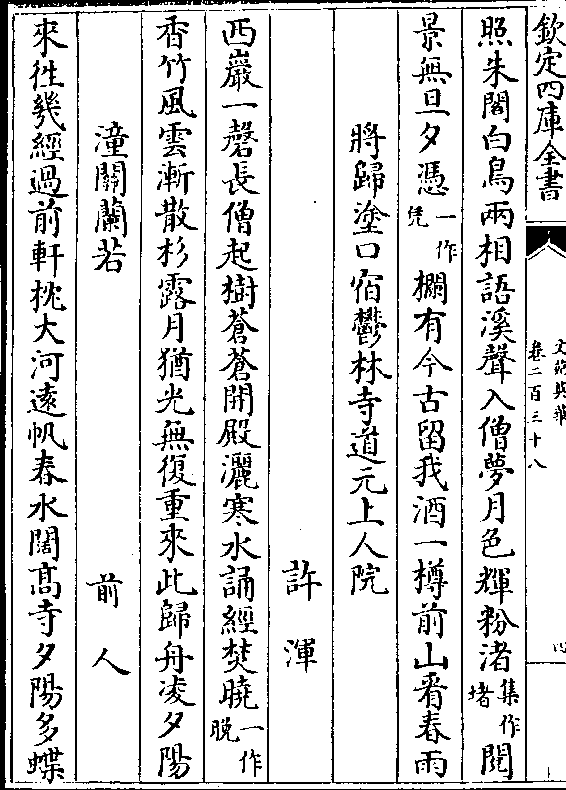 欽定四庫全書
文苑英華
卷二百三十八
四
照朱閣白鳥兩相語溪聲入僧夢月色輝粉渚集作堵閱
景無旦夕憑一作凭欄有今古留我酒一樽前山看春雨
將歸塗口宿鬱林寺道元上人院
許渾
西巖一磬長僧起樹蒼蒼開殿灑寒水誦經焚曉一作晚
香竹風雲漸散杉露月猶光無復重來此歸舟凌夕陽
潼關蘭若
前人
來往幾經過前軒枕大河遠帆春水闊高寺夕陽多蝶